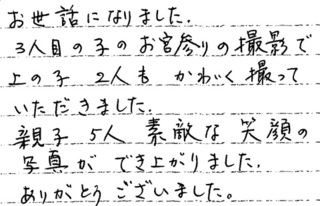 お世話になりました.
3人目の子のお宮参りの撮影で
上の子 2人も かわいく撮って
いただきました.
親子 5人 素敵な 笑顔の
写真が でき上がりました.
ありがとう ございました。